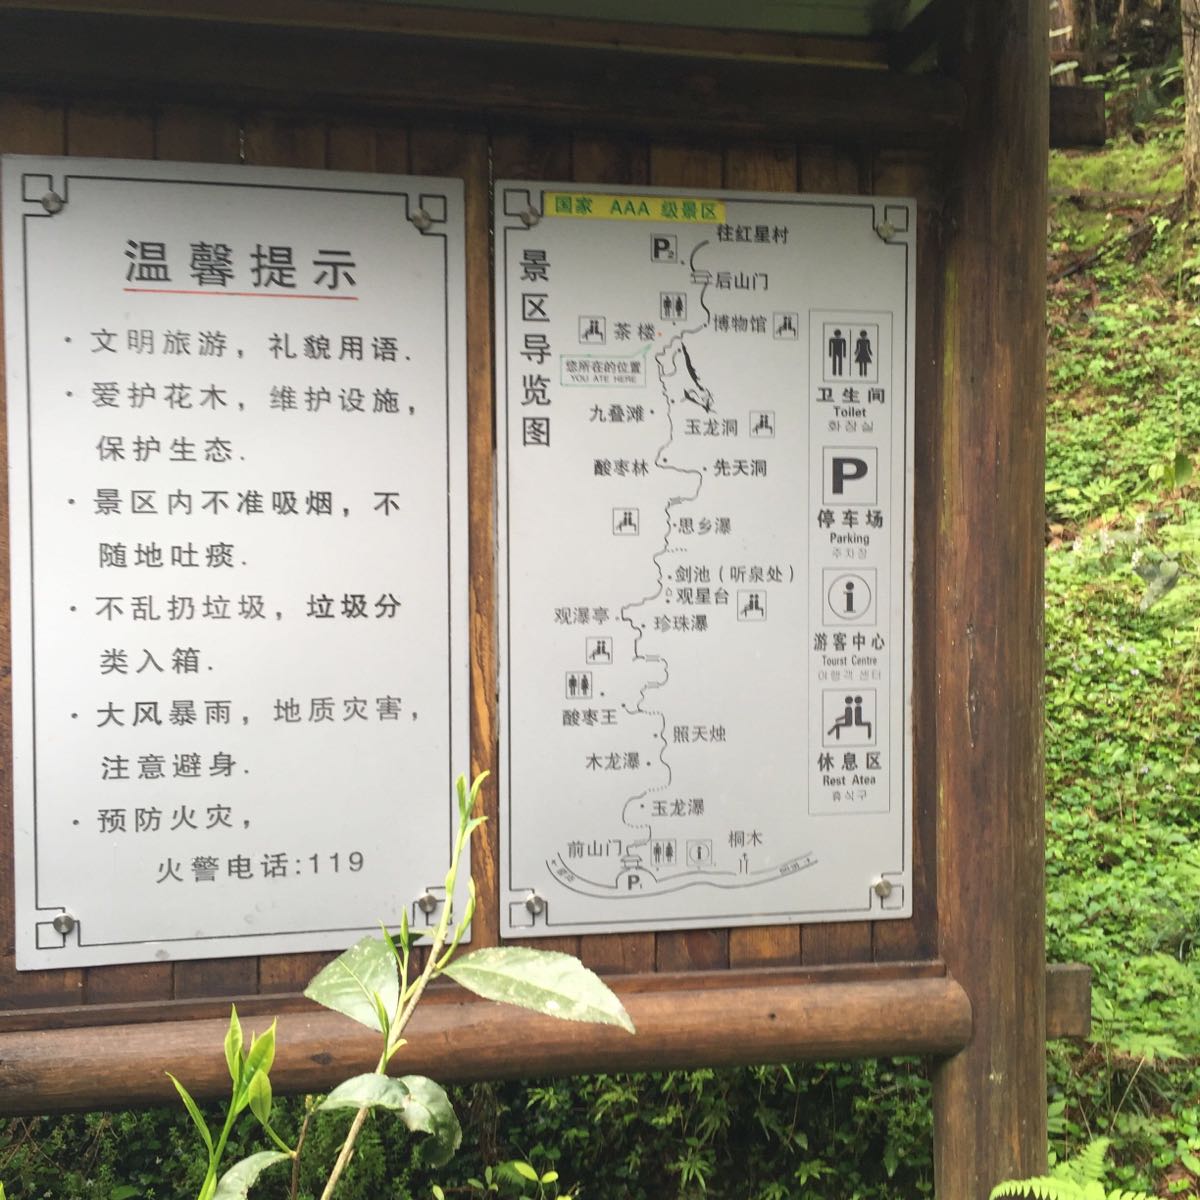 温馨提示
·文明旅游，礼貌用语.
·爱护花木，维护设施，
保护生态.
·景区内不准吸烟，不
随地吐痰.
·不乱扔垃圾，垃圾分
类入箱.
·大风暴雨，地质灾害，
注意避身.
·预防火灾，
火警电话:119
国家 AAA 级景区
景区导览图
往红星村
P2
后山门
博物馆
茶楼
您所在的位置
YOU ATE HERE
九叠滩
玉龙洞
酸枣林
先天洞
思乡瀑
剑池（听泉处）
观星台
观瀑亭
珍珠瀑
酸枣王
照天烛
木龙瀑
玉龙瀑
前山门
桐木
P1
卫生间
Toilet
화장실
P
停车场
Parking
주차장
i
游客中心
Tourst Centre
여행객 센터
休息区
Rest Atea
휴식구